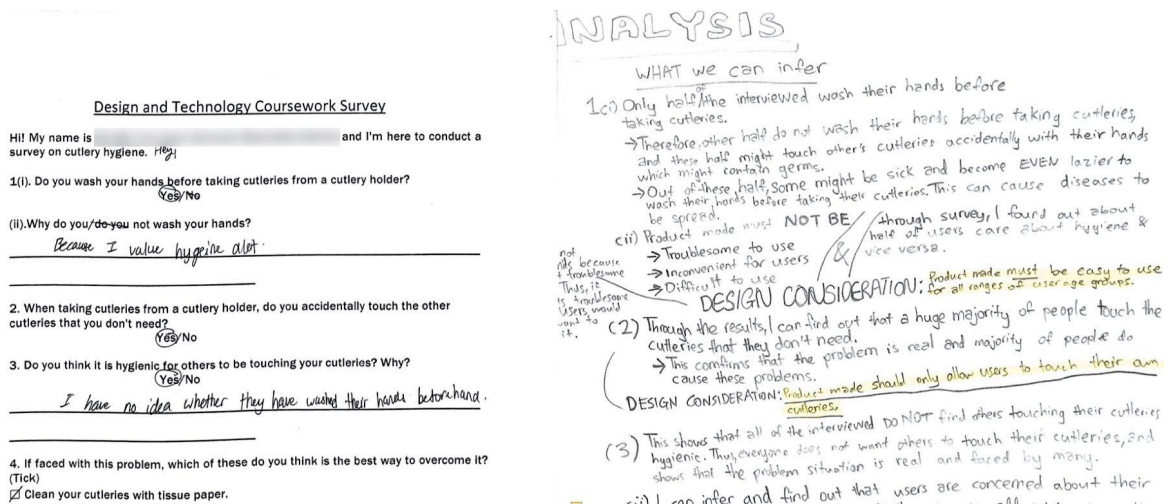 Design and Technology Coursework Survey
Hi! My name is and I'm here to conduct a
survey on cutlery hygiene. Hey!
1(i). Do you wash your hands before taking cutleries from a cutlery holder?
Yes/No
(ii).Why do you/do you not wash your hands?
Because I value hygeine alot.
2. When taking cutleries from a cutlery holder, do you accidentally touch the other
cutleries that you don't need?
Yes/No
3. Do you think it is hygienic for others to be touching your cutleries? Why?
Yes/No
I have no idea whether they have washed their hands beforehand.
4. If faced with this problem, which of these do you think is the best way to overcome it?
(Tick)
Clean your cutleries with tissue paper.
NALYSIS
WHAT we can infer
1(i) Only half of the interviewed wash their hands before
taking cutleries.
→Therefore, other half do not wash their hands before taking cutleries,
and these half might touch other's cutleries accidentally with their hands
which might contain germs.
→Out of these half, Some might be sick and become EVEN lazier to
wash their hands before taking their cutleries. This can cause diseases to
be spread.
(ii) Product made must NOT BE
→Troublesome to use
→Inconvenient for users
→Difficult to use
&
through survey, I found out about
half of users care about hygiene &
vice versa.
not
because
troublesome
Thus, it
is troublesome
users would
want to
it.
DESIGN CONSIDERATION: Product made must be easy to use
for all ranges of user age groups.
(2) Through the results, I can find out that a huge majority of people touch the
cutleries that they don't need.
→This comfirms that the problem is real and majority of people do
cause these problems.
DESIGN CONSIDERATION: Product made should only allow users to touch their own
cutleries.
(3) This shows that all of the interviewed DO NOT find others touching their cutleries
hygienic. Thus, everyone does not want others to touch their cutleries, and
shows that the problem situation is real and faced by many.
I can infer and find out that users are concerned about their